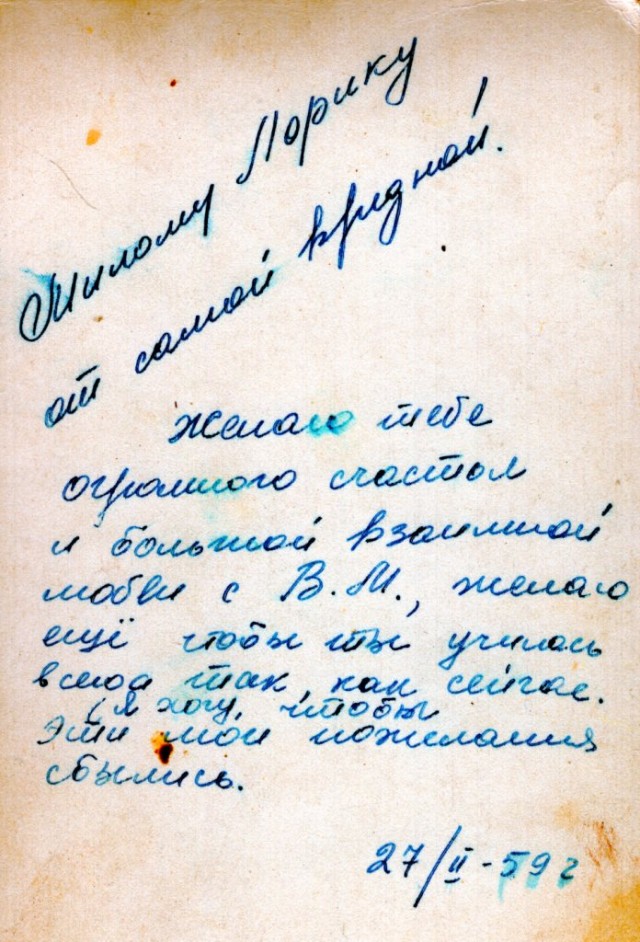 Милому Лорику
от самой вредной!
Желаю тебе
огромного счастья
и большой взаимной
любви с В.М., желаю
ещё чтобы ты училась
всегда так, как сейчас.
(Я хочу, чтобы
Эти мои пожелания
сбылись.
27/II-59 г